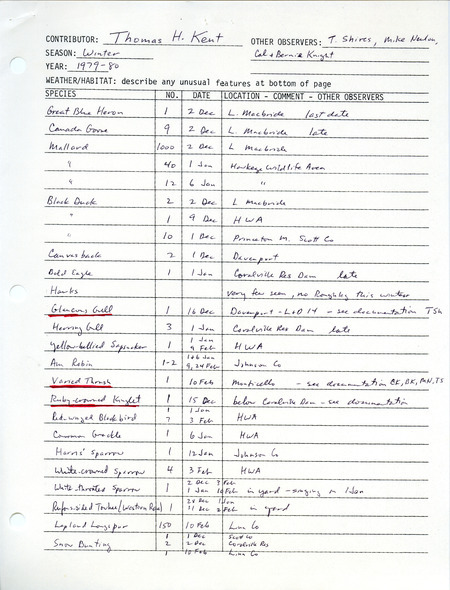 CONTRIBUTOR: Thomas H. Kent OTHER OBSERVERS: T. Shires, Mike Newlon,
SEASON: Winter Cal & Bernie Knight
YEAR: 1979-80
WEATHER/HABITAT: describe any unusual features at bottom of page
SPECIES NO. DATE LOCATION - COMMENT - OTHER OBSERVERS
Great Blue Heron 1 2 Dec L. Macbride last date
Canada Goose 9 2 Dec L. Macbride late
Mallard 1000 2 Dec L Macbride
" 40 1 Jan Hawkeye Wildlife Area
" 12 6 Jan "
Black Duck 2 2 Dec L Macbride
" 1 9 Dec HWA
" 10 1 Dec Princeton M. Scott Co
Canvasback 2 1 Dec Davenport
Bald Eagle 1 1 Jan Coralville Res Dam late
Hawks very few seen, no Roughleg this winter
Glaucous Gull 1 16 Dec Davenport - L+D 14 - see documentation TSh
Herring Gull 3 1 Jan Coralville Res Dam late
Yellow-bellied Sapsucker 1 1 Jan 9 Feb HWA
Am Robin 1-2 1+6 Jan 9, 24 Feb Johnson Co
Varied Thrush 1 10 Feb Monticello - see documentation CK, BK, MN, TS
Ruby-crowned Kinglet 1 15 Dec below Coralville Dam - see documentation
Red-winged Blackbird 1 1 Jan
7 3 Feb HWA
Common Grackle 1 6 Jan HWA
Harris' Sparrow 1 12 Jan Johnson Co
White-crowned Sparrow 4 3 Feb HWA
White-throated Sparrow 1 2 Dec 3 Feb
1 Jan 10 Feb in yard - singing on 1 Jan
Rufous-sided Towhee (Western Race) 1 28 Dec 1 Jan
31 Dec 2 Feb in yard
Lapland Longspur 150 10 Feb Linn Co
Snow Bunting 1 1 Dec Scott Co
2 2 Dec Coralville Res
1 10 Feb Linn Co